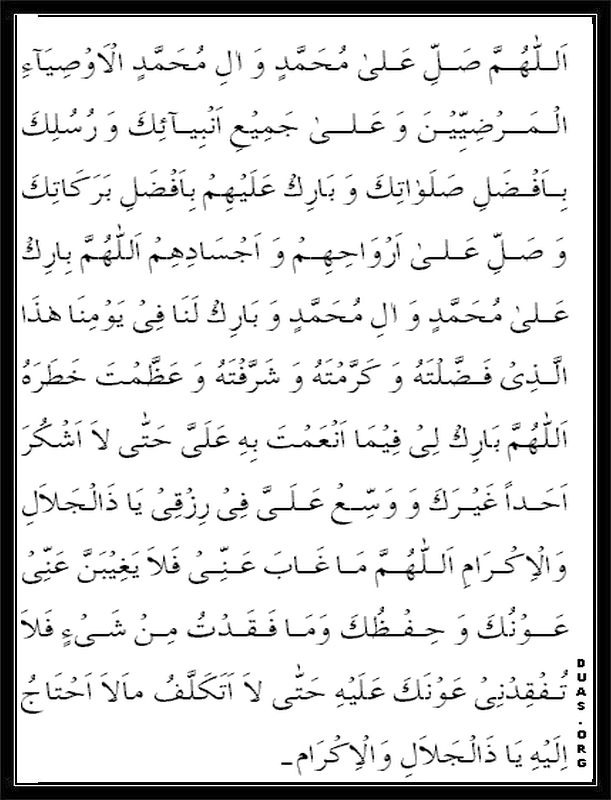 اَللّٰهُمَّ صَلِّ عَلىٰ مُحَمَّدٍ وَ اٰلِ مُحَمَّدٍ الْاَوْصِيَآءِ
الْمَرْضِيِّيْنَ وَ عَلىٰ جَمِيْعِ اَنْۢبِيَآئِكَ وَ رُسُلِكَ
بِاَفْضَلِ صَلَوٰاتِكَ وَ بَارِكْ عَلَيْهِمْ بِاَفْضَلِ بَرَكَاتِكَ
وَ صَلِّ عَلىٰ اَرْوَاحِهِمْ وَ اَجْسَادِهِمْ اَللّٰهُمَّ بِارِكْ
عَلىٰ مُحَمَّدٍ وَ اٰلِ مُحَمَّدٍ وَ بَارِكْ لَنَا فِىْ يَوْمِنَا هٰذَا
الَّذِىْ فَضَّلْتَهُ وَ كَرَّمْتَهُ وَ شَرَّفْتَهُ وَ عَظَّمْتَ خَطَرَهُ
اَللّٰهُمَّ بَارِكْ لِىْ فِيْمَا اَنْعَمْتَ بِهِ عَلَىَّ حَتّٰى لاَ اَشْكُرَ
اَحَداً غَيْرَكَ وَ وَسِّعْ عَلَىَّ فِىْ رِزْقِىْ يَا ذَالْجَلاَلِ
وَالْاِكْرَامِ اَللّٰهُمَّ مَا غَابَ عَنِّىْ فَلاَ يَغِيْبَنَّ عَنِّىْ
عَوْنُكَ وَ حِفْظُكَ وَمَا فَقَدْتُ مِنْ شَىْءٍ فَلاَ
تُفْقِدْنِىْ عَوْنَكَ عَلَيْهِ حَتّٰى لاَ اَتَكَلَّفُ مَالاَ اَحْتَاجُ
اِلَيْهِ يَا ذَالْجَلاَلِ وَالْاِكْرَامِ۔
DUAS.ORG